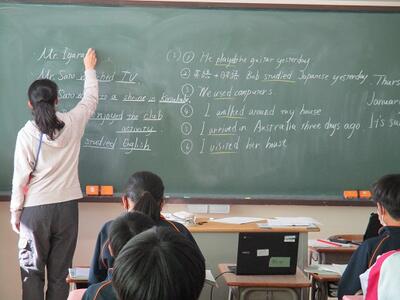 Mr. Igara
Mr. Sato watched TV.
Sato to a shrine in
enjoyed the club
activity
studied English
(1) ① He played the guitar yesterday
② 英語→日本語 Bob studied Japanese yesterday
③ We used computers.
④ I walked around my house
⑤ I arrived in Australia three days ago
⑥ I visited her house
Thurs
January
It's su